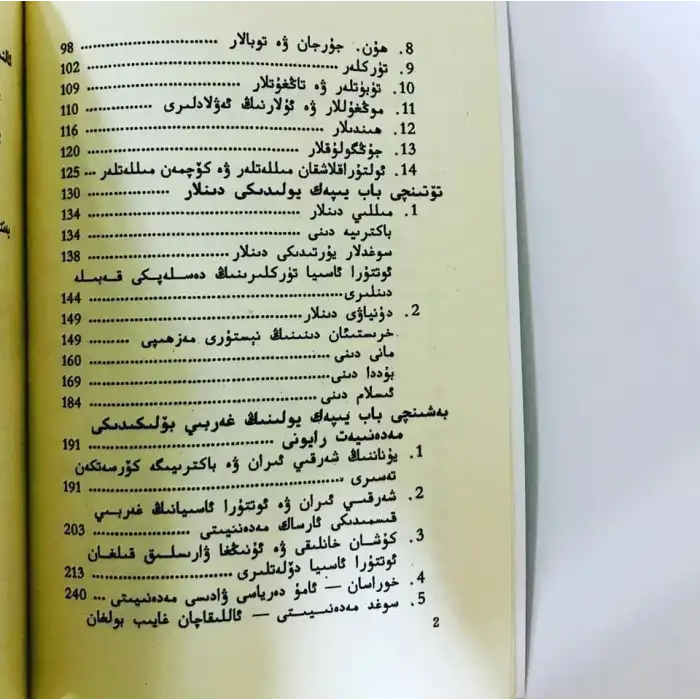 8. ھۇن. جۇرجان ۋە توبالار ........ 98
9. تۈركلەر ........ 102
10. تۈبۈتلەر ۋە تاڭغۇتلار ........ 109
11. موڭغۇللار ۋە ئۇلارنىڭ ئەۋلادلىرى ........ 110
12. ھىندىلار ........ 116
13. جۇڭگولۇقلار ........ 120
14. ئولتۇراقلاشقان مىللەتلەر ۋە كۆچمەن مىللەتلەر ... 125
تۆتىنچى باب يىپەك يولىدىكى دىنلار ........ 130
1. مىللىي دىنلار ........ 134
باكترىيە دىنى ........ 134
سوغدلار يۇرتىدىكى دىنلار ........ 138
ئوتتۇرا ئاسىيا تۈركلىرىنىڭ دەسلەپكى قەبىلە
دىنلىرى ........ 144
2. دۇنياۋى دىنلار ........ 149
خرىستىئان دىنىنىڭ نېستۇرى مەزھىپى ........ 149
مانى دىنى ........ 160
بۇددا دىنى ........ 169
ئىسلام دىنى ........ 184
بەشىنچى باب يىپەك يولىنىڭ غەربىي بۆلىكىدىكى
مەدەنىيەت رايونى ........ 191
1. يۇناننىڭ شەرقىي ئىران ۋە باكترىيىگە كۆرسەتكەن
تەسىرى ........ 191
2. شەرقىي ئىران ۋە ئوتتۇرا ئاسىيانىڭ غەربىي
قىسمىدىكى ئارساك مەدەنىيىتى ........ 203
3. كۇشان خانلىقى ۋە ئۇنىڭغا ۋارىسلىق قىلغان
ئوتتۇرا ئاسىيا دۆلەتلىرى ........ 213
4. خوراسان — ئامۇ دەرياسى ۋادىسى مەدەنىيىتى ... 240
5. سوغد مەدەنىيىتى — ئاللىقاچان غايىب بولغان
2